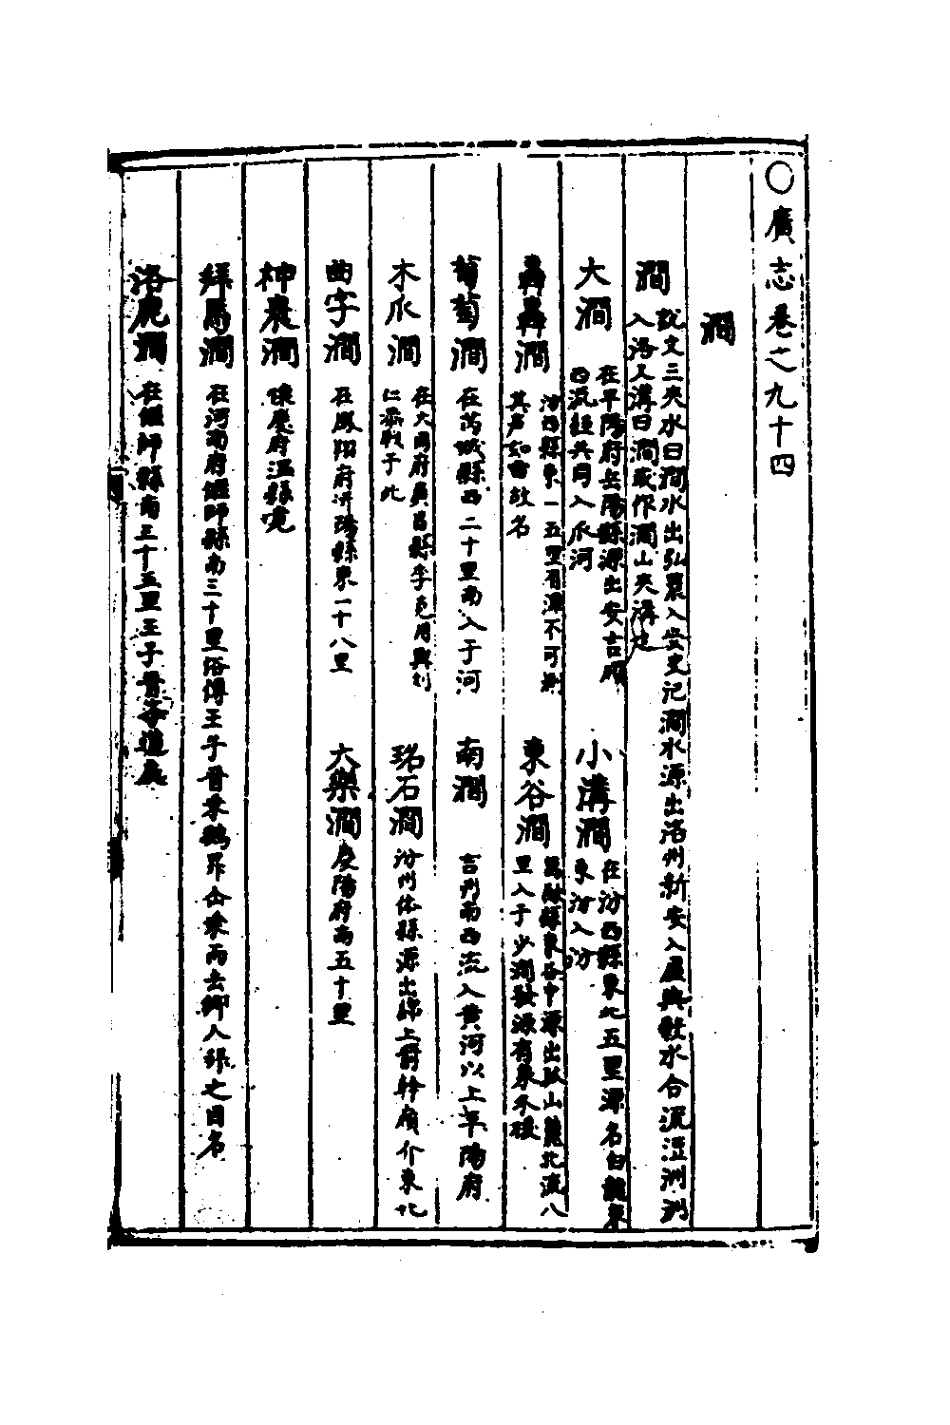 ○廣志卷之九十四
澗
澗 說文三夾水曰澗水出弘農入
入洛又溝曰澗或作澗山夾溝也
史記澗水源出洛州新安入
水合流
大澗 在平陽府岳陽縣源出安吉
西流經共同入爪河
小溝澗 在汾西縣東北五里源名白龍泉
東汾入汾
澗 汾西縣東一五里有潭不可測
其声如雷故名
東谷澗 縣東谷中源出山麓北流八
里入于少澗發源有泉冬煖
葡萄澗 在芮城縣西二十里南入于河
南澗 吉州南西流入黄河以上平陽府
木爪澗 在大同府廣昌縣李克用與
仁恭戰于此
石澗 汾州縣源出綿上介東北
曲字澗 在鳳翔府汧陽縣東一十八里
大樂澗 慶陽府南五十里
神農澗 懷慶府溫縣
拜馬澗 在河南府偃師縣南三十里俗傳王子晉乘鶴昇而去鄉人之因名
洛鹿澗 在偃師縣南三十五里王子晉